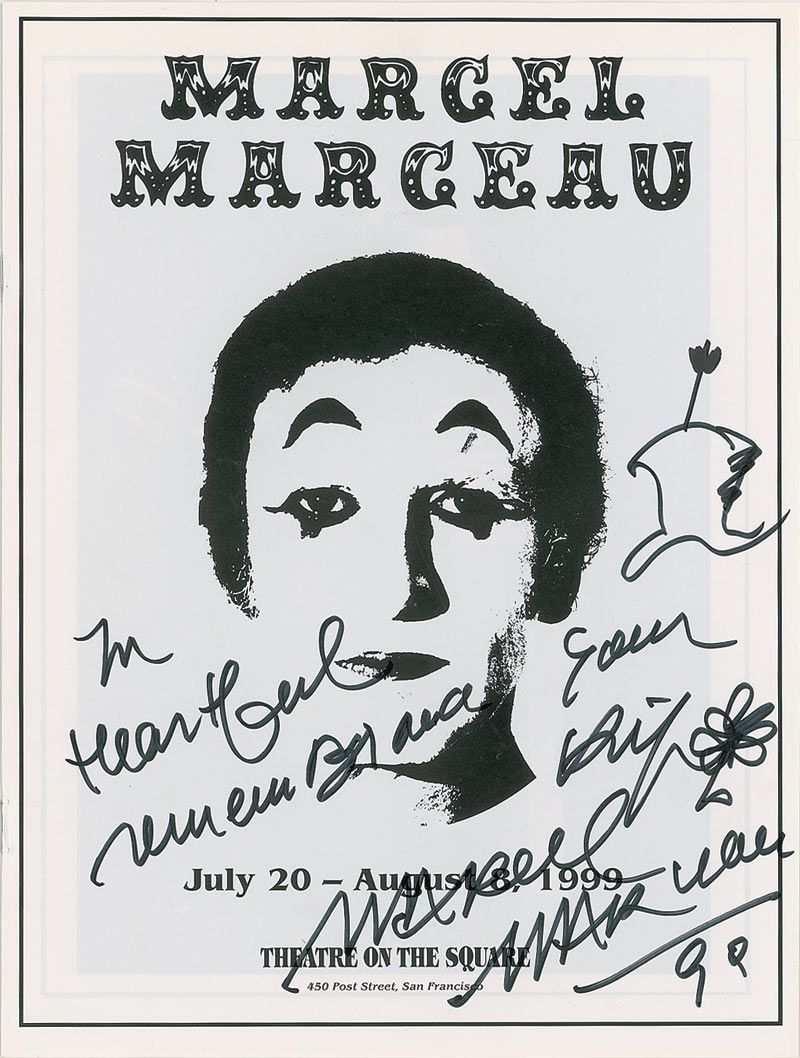 MARCEL
MARCEAU
In
Heartful
remembrance
your
Bip
July 20 – August 8, 1999
Marcel
Marceau
THEATRE ON THE SQUARE
450 Post Street, San Francisco
99